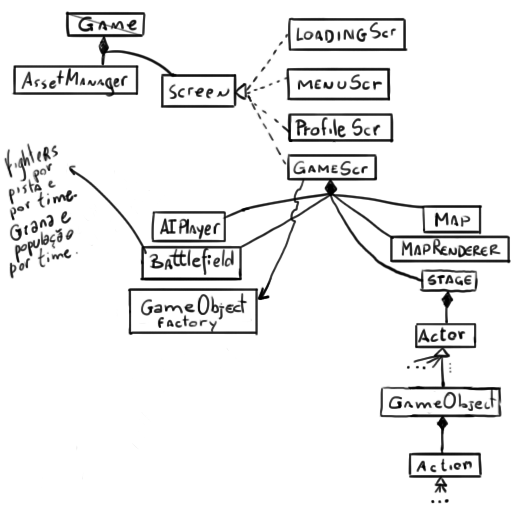 GAME
ASSETMANAGER
SCREEN
LOADINGSCR
MENUSCR
Profile Scr
GAMESCR
Fighters
por
pista e
por time.
Grana e
população
por time.
AIPlayer
Battlefield
GameObject
Factory
MAP
MAPRENDERER
STAGE
Actor
...
...
GameObject
Action
...